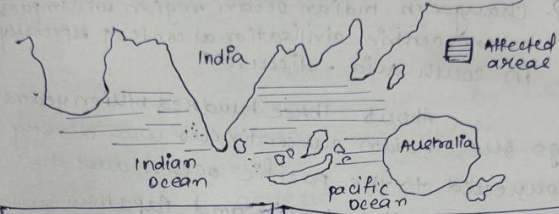 India
Affected
areas
Indian
Ocean
Australia
pacific
Ocean